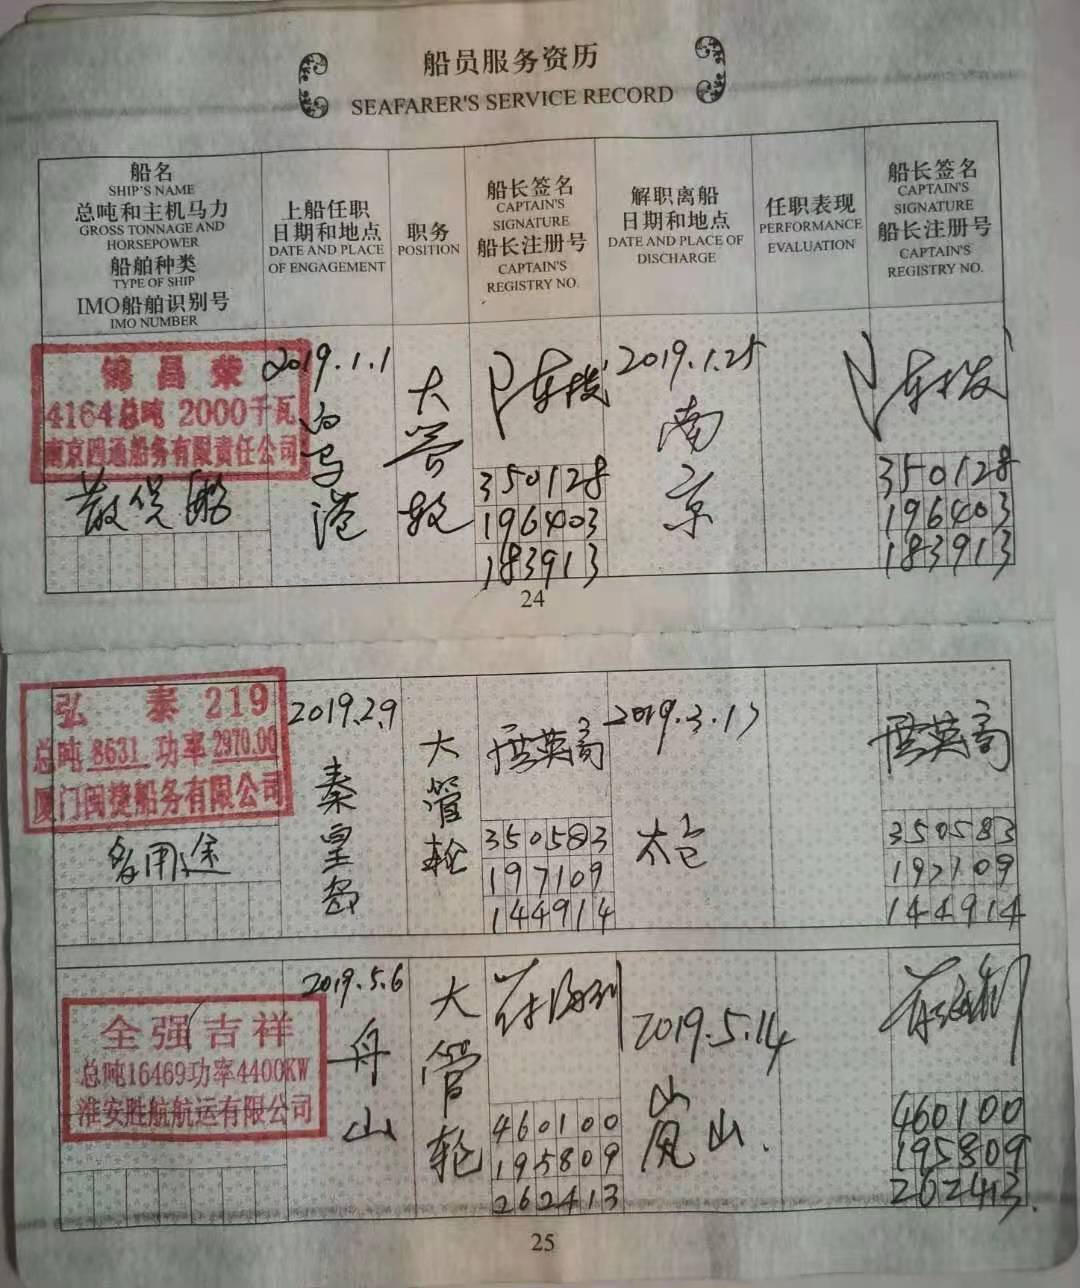 船员服务资历
SEAFARER'S SERVICE RECORD
船名
SHIP'S NAME
总吨和主机马力
GROSS TONNAGE AND
HORSEPOWER
船舶种类
TYPE OF SHIP
IMO船舶识别号
IMO NUMBER
上船任职
日期和地点
DATE AND PLACE
OF ENGAGEMENT
职务
POSITION
船长签名
CAPTAIN'S
SIGNATURE
船长注册号
CAPTAIN'S
REGISTRY NO.
解职离船
日期和地点
DATE AND PLACE OF
DISCHARGE
任职表现
PERFORMANCE
EVALUATION
船长签名
CAPTAIN'S
SIGNATURE
船长注册号
CAPTAIN'S
REGISTRY NO.
锦昌荣
4164总吨 2000千瓦
南京四通船务有限责任公司
散货船
2019.1.1
白马港
大管轮
350128
196403
183913
2019.1.25
南京
350128
196403
183913
24
弘泰219
总吨8631功率2970.00
厦门闽捷船务有限公司
多用途
2019.2.9
秦皇岛
大管轮
350583
197109
144914
2019.3.13
太仓
350583
197109
144914
全强吉祥
总吨16469功率4400KW
淮安胜航航运有限公司
2019.5.6
舟山
大管轮
460100
195809
262413
2019.5.14
岚山
460100
195809
262413
25